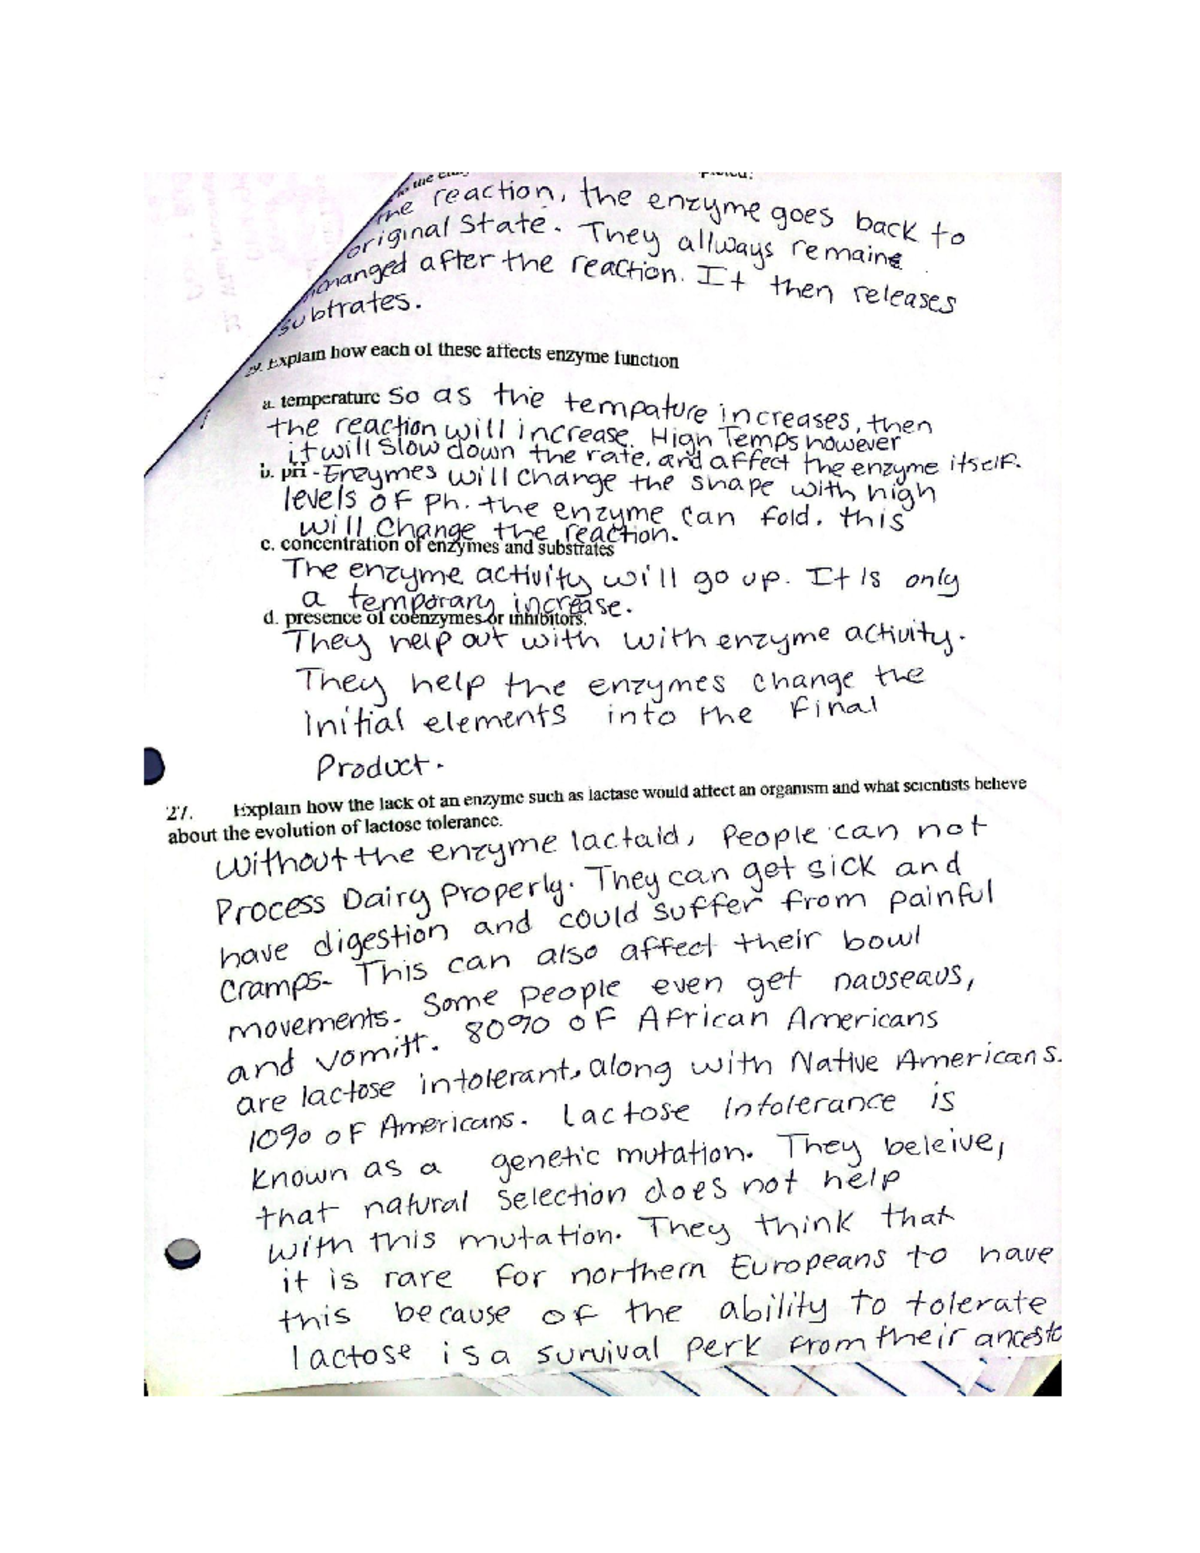 the reaction, the enzyme goes back to
original State. They allways remaine
changed after the reaction. It then releases
subtrates.
Explain how each of these affects enzyme function
a. temperature So as the tempature increases, then
the reaction will increase. High Temps however
it will slow down the rate, and affect the enzyme itself.
b. pH - Enzymes will change the shape with high
levels of Ph. the enzyme can fold. this
will change the reaction.
c. concentration of enzymes and substrates
The enzyme activity will go up. It is only
a temporary increase.
d. presence of coenzymes or inhibitors.
They help out with with enzyme activity.
They help the enzymes change the
Initial elements into the Final
Product.
27. Explain how the lack of an enzyme such as lactase would affect an organism and what scientists believe
about the evolution of lactose tolerance.
Without the enzyme lactaid, People can not
Process Dairy Properly. They can get sick and
have digestion and could suffer from painful
cramps- This can also affect their bowl
movements. Some people even get nauseaus,
and vomitt. 80% of African Americans
are lactose intolerant, along with Native Americans.
10% of Americans. Lactose Intolerance is
known as a genetic mutation. They beleive,
that natural Selection does not help
with this mutation. They think that
it is rare for northern Europeans to have
this because of the ability to tolerate
lactose is a survival perk from their